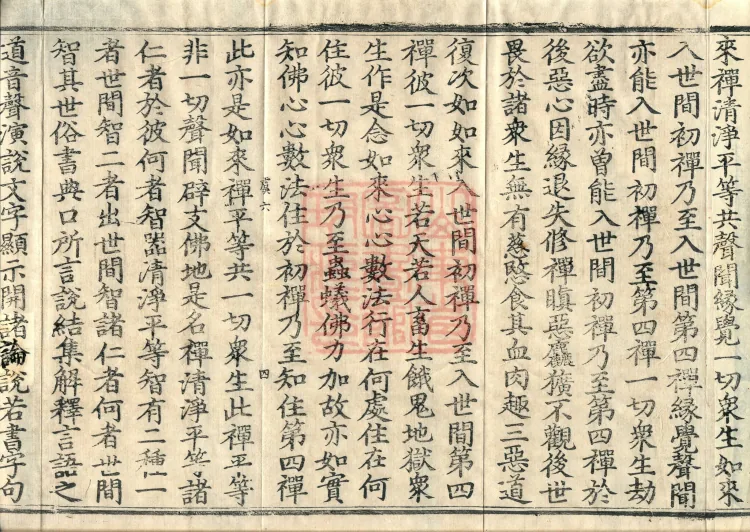 來禪清淨平等共聲聞緣覺一切衆生如來
入世間初禪乃至入世間第四禪緣覺聲聞
亦能入世間初禪乃至第四禪一切衆生劫
欲盡時亦曾能入世間初禪乃至第四禪於
後惡心因緣退失修禪瞋惡麤獷不觀後世
畏於諸衆生無有慈愍食其血肉趣三惡道
復次如如來入世間初禪乃至入世間第四
禪彼一切衆生若天若人畜生餓鬼地獄衆
生作是念如來心心數法行在何處住在何
住彼一切衆生乃至蟲蟻佛力加故亦如實
知佛心心數法住於初禪乃至知住第四禪
虞六 四
此亦是如來禪平等共一切衆生此禪平等
非一切聲聞辟支佛地是名禪清淨平等諸
仁者於彼何者智器清淨平等智有二種一
者世間智二者出世間智諸仁者何者世間
智其世俗書典口所言說結集解釋言語之
道音聲演說文字顯示開諸論說若書字句